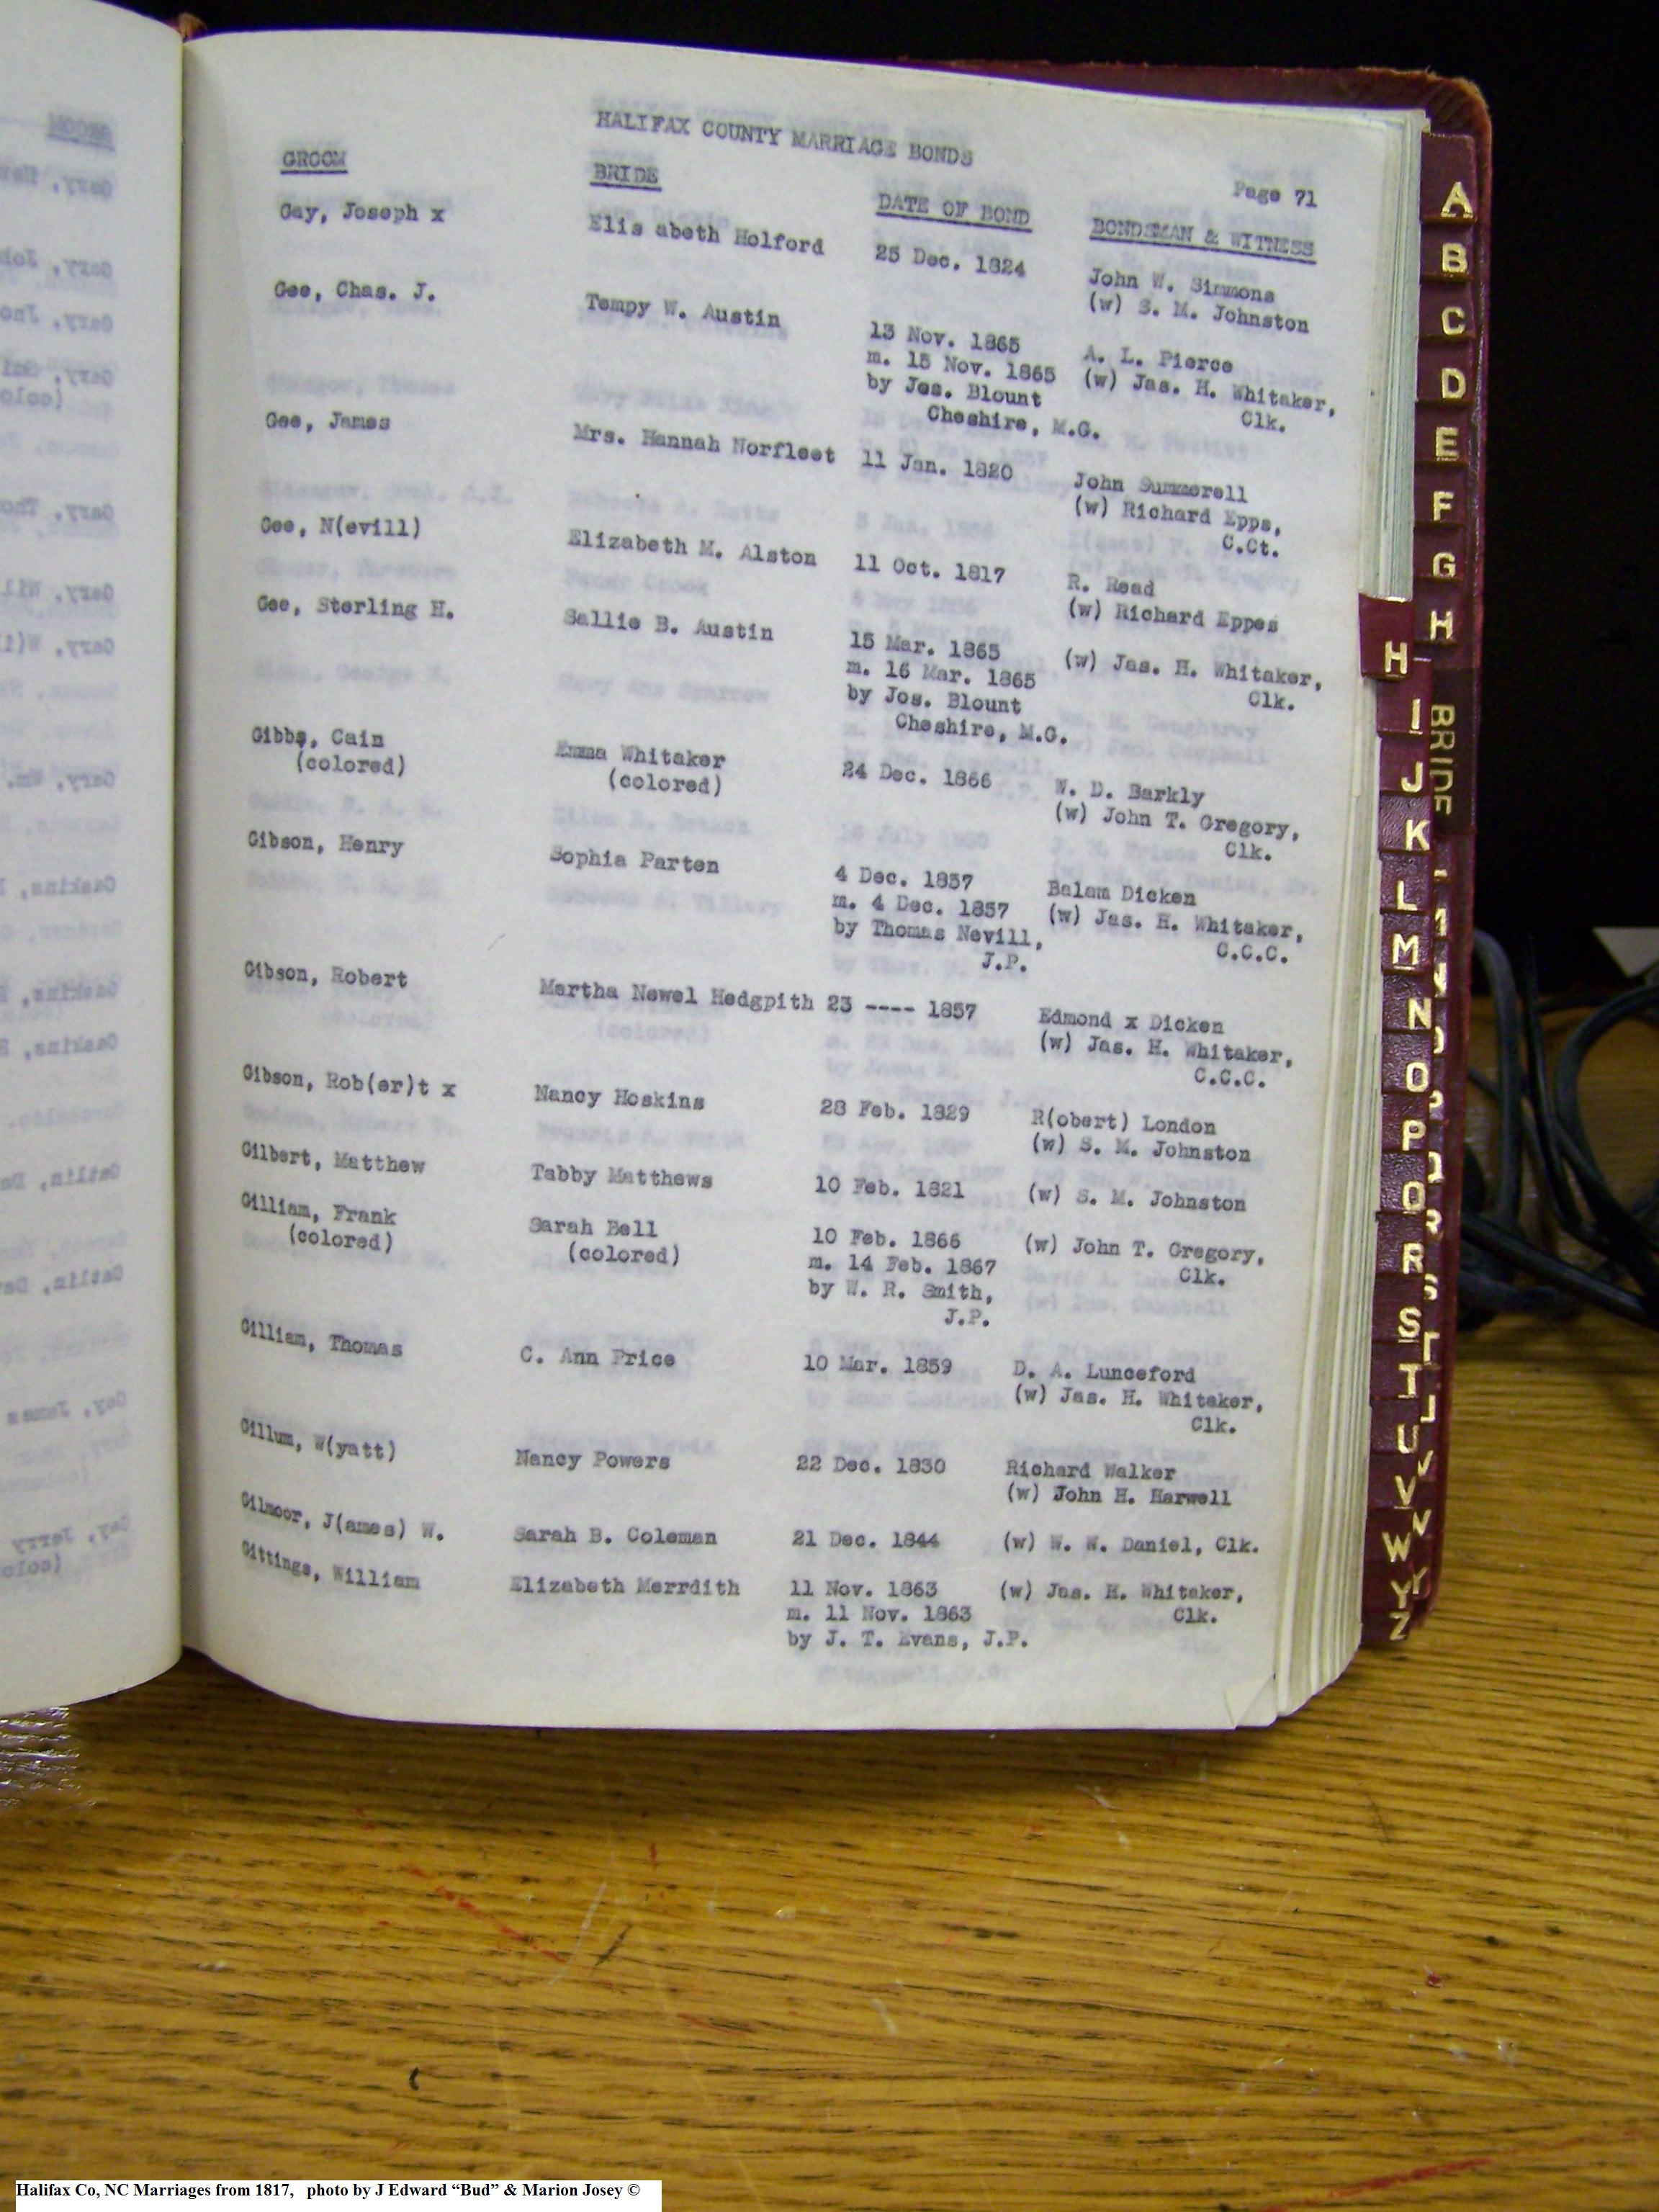 HALIFAX COUNTY MARRIAGE BONDS
Page 71
GROOM BRIDE DATE OF BOND BONDSMAN & WITNESS
Gay, Joseph x Elis abeth Holford 25 Dec. 1824 John W. Simmons
(w) S. M. Johnston
Gee, Chas. J. Tempy W. Austin 13 Nov. 1865 A. L. Pierce
m. 15 Nov. 1865 (w) Jas. H. Whitaker,
by Jos. Blount Clk.
Cheshire, M.G.
Gee, James Mrs. Hannah Norfleet 11 Jan. 1820 John Summerell
(w) Richard Epps,
C.Ct.
Gee, N(evill) Elizabeth M. Alston 11 Oct. 1817 R. Read
(w) Richard Eppes
Gee, Sterling H. Sallie B. Austin 15 Mar. 1865 (w) Jas. H. Whitaker,
m. 16 Mar. 1865 Clk.
by Jos. Blount
Cheshire, M.G.
Gibbs, Cain Emma Whitaker 24 Dec. 1866 W. D. Barkly
(colored) (colored) (w) John T. Gregory,
Clk.
Gibson, Henry Sophia Parten 4 Dec. 1857 Balam Dicken
m. 4 Dec. 1857 (w) Jas. H. Whitaker,
by Thomas Nevill, C.C.C.
J.P.
Gibson, Robert Martha Newel Hedgpith 23 ---- 1857 Edmond x Dicken
(w) Jas. H. Whitaker,
C.C.C.
Gibson, Rob(er)t x Nancy Hoskins 28 Feb. 1829 R(obert) London
(w) S. M. Johnston
Gilbert, Matthew Tabby Matthews 10 Feb. 1821 (w) S. M. Johnston
Gilliam, Frank Sarah Bell 10 Feb. 1866 (w) John T. Gregory,
(colored) (colored) m. 14 Feb. 1867 Clk.
by W. R. Smith,
J.P.
Gilliam, Thomas C. Ann Price 10 Mar. 1859 D. A. Lunceford
(w) Jas. H. Whitaker,
Clk.
Gillum, W(yatt) Nancy Powers 22 Dec. 1830 Richard Walker
(w) John H. Harwell
Gilmoor, J(ames) W. Sarah B. Coleman 21 Dec. 1844 (w) W. W. Daniel, Clk.
Gittings, William Elizabeth Merrdith 11 Nov. 1863 (w) Jas. H. Whitaker,
m. 11 Nov. 1863 Clk.
by J. T. Evans, J.P.
A
B
C
D
E
F
G
H
BRIDE
H
I
J
K
L
M
N
O
P
Q
R
S
T
U
V
W
Y
Z
Halifax Co, NC Marriages from 1817, photo by J Edward “Bud” & Marion Josey ©